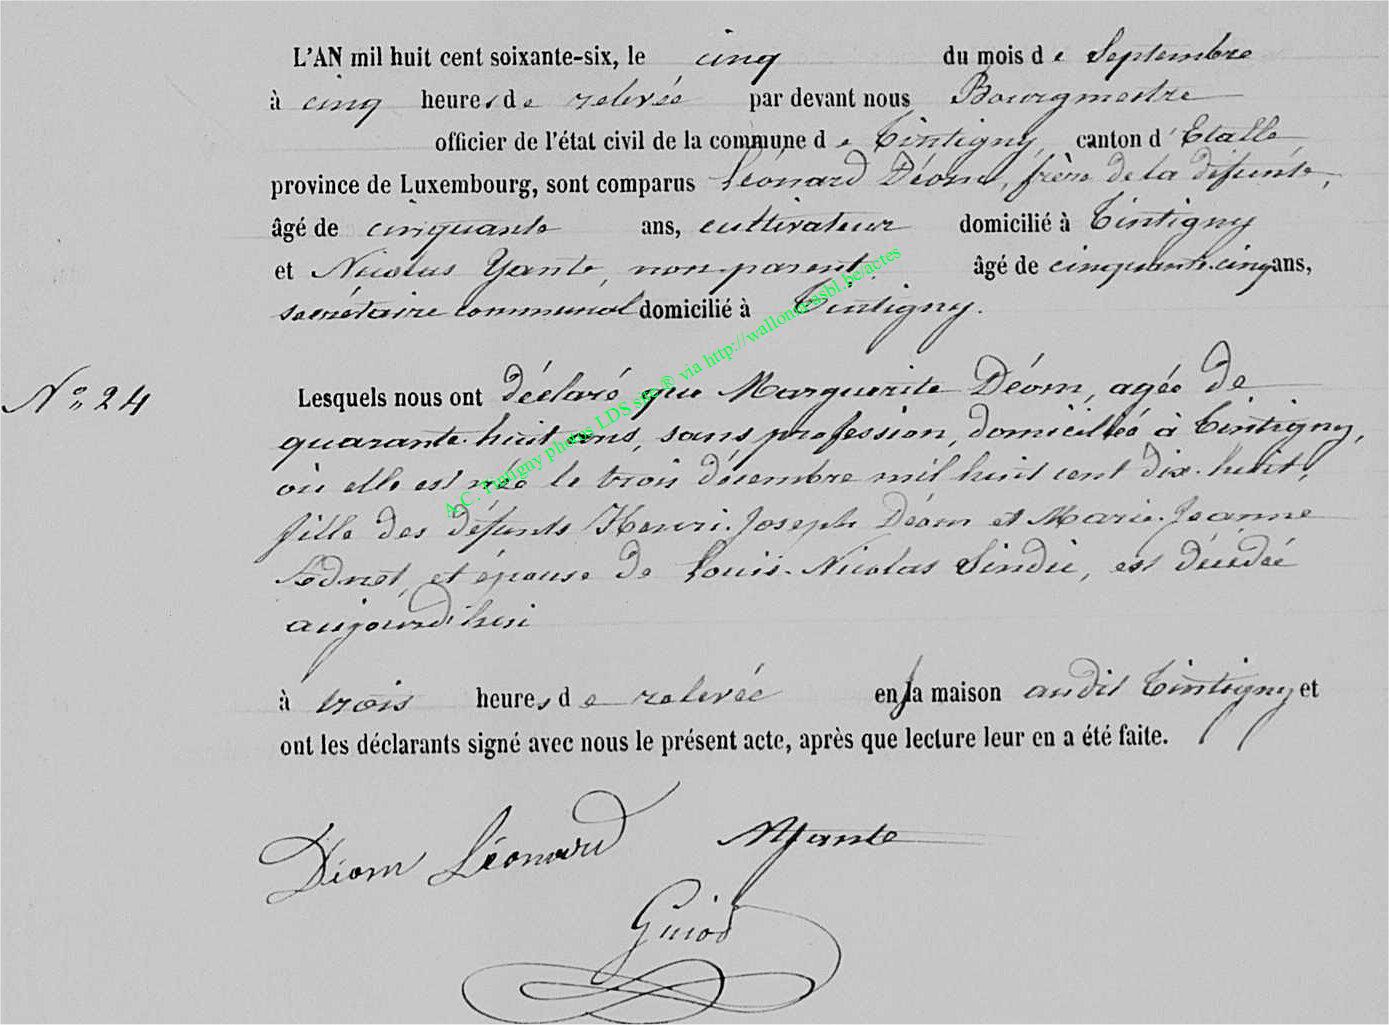 L'AN mil huit cent soixante-six, le cinq du mois de Septembre
à cinq heures de relevée par devant nous Bourgmestre
officier de l'état civil de la commune de Tintigny, canton d'Etalle
province de Luxembourg, sont comparus Léonard Déom, frère de la défunte,
âgé de cinquante ans, cultivateur domicilié à Tintigny
et Nicolas Yante, non parent, âgé de cinquante-cinq ans,
secrétaire communal domicilié à Tintigny.
N° 24
Lesquels nous ont déclaré que Marguerite Déom, agée de
quarante-huit ans, sans profession, domiciliée à Tintigny,
où elle est née le trois décembre mil huit cent dix-huit,
fille des défunts Henri-Joseph Déom et Marie-Jeanne
et épouse de Louis-Nicolas Sindic, est décédée
aujourd'hui
à trois heures de relevée en la maison audit Tintigny et
ont les déclarants signé avec nous le présent acte, après que lecture leur en a été faite.
Déom Léonard NYante
Guiot
A.C. Tintigny photos LDS site® via http://wallonia-asbl.be/actes